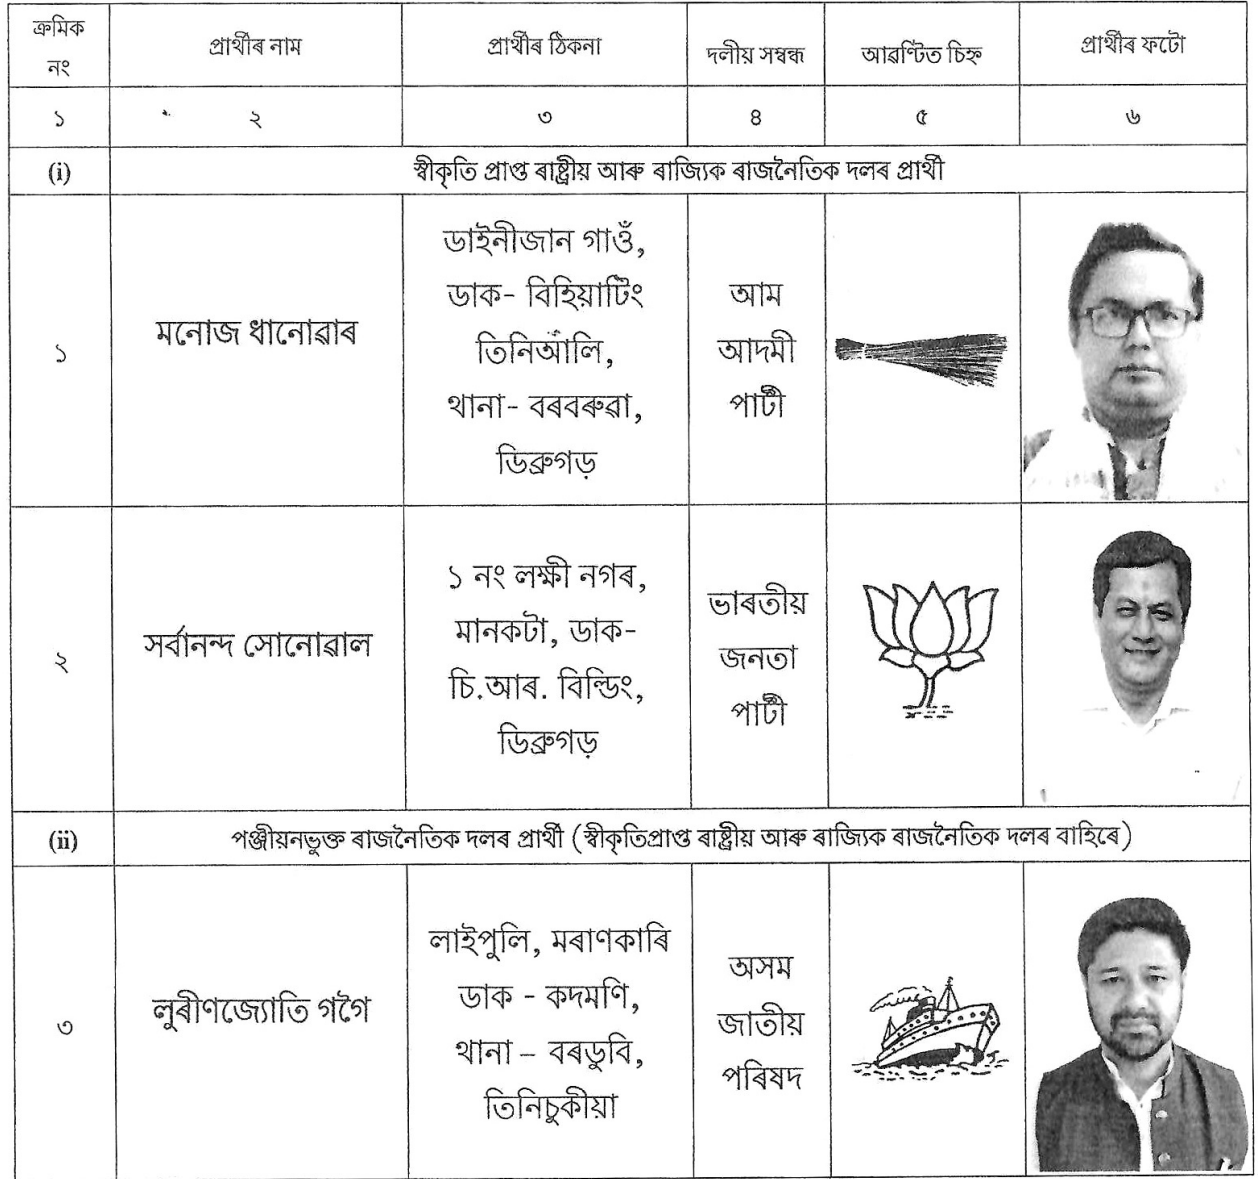 ক্ৰমিক
নং
প্ৰাৰ্থীৰ নাম
প্ৰাৰ্থীৰ ঠিকনা
দলীয় সম্বন্ধ
আৱণ্টিত চিহ্ন
প্ৰাৰ্থীৰ ফটো
১ ২ ৩ ৪ ৫ ৬
(i) স্বীকৃতি প্ৰাপ্ত ৰাষ্ট্ৰীয় আৰু ৰাজ্যিক ৰাজনৈতিক দলৰ প্ৰাৰ্থী
১
মনোজ ধানোৱাৰ
ডাইনীজান গাওঁ,
ডাক- বিহিয়াটিং
তিনিআঁলি,
থানা- বৰবৰুৱা,
ডিব্ৰুগড়
আম
আদমী
পাৰ্টী
২
সৰ্বানন্দ সোনোৱাল
১ নং লক্ষী নগৰ,
মানকটা, ডাক-
চি.আৰ. বিল্ডিং,
ডিব্ৰুগড়
ভাৰতীয়
জনতা
পাৰ্টী
(ii) পঞ্জীয়নভুক্ত ৰাজনৈতিক দলৰ প্ৰাৰ্থী (স্বীকৃতিপ্ৰাপ্ত ৰাষ্ট্ৰীয় আৰু ৰাজ্যিক ৰাজনৈতিক দলৰ বাহিৰে)
৩
লুৰীণজ্যোতি গগৈ
লাইপুলি, মৰাণকাৰি
ডাক - কদমণি,
থানা – বৰডুবি,
তিনিচুকীয়া
অসম
জাতীয়
পৰিষদ